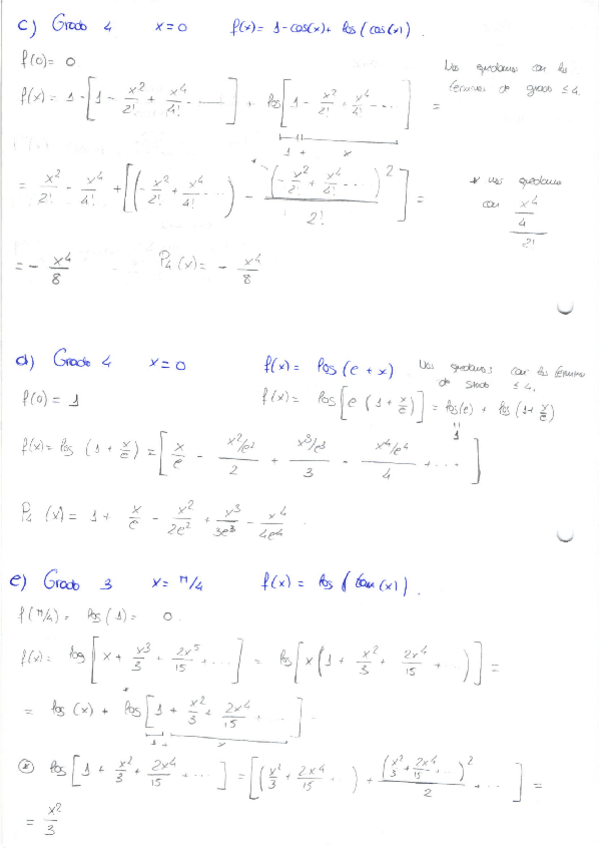 c) Grado 4 x=0 f(x)= 1-cos(x)+ log(cos(x)).
f(0)= 0
Nos quedamos con los
términos de grado ≤4.
f(x)= 1-[1 - x²/2! + x⁴/4! - ...] + log[1 - x²/2! + x⁴/4! - ...] =
1 + x
= x²/2! - x⁴/4! + [(-x²/2! + x⁴/4! - ...) - (-x²/2! + x⁴/4! - ...)²/2!] =
* nos quedamos
con x⁴/4/2!
= - x⁴/8 P₄(x)= - x⁴/8
d) Grado 4 x=0 f(x)= log(e+x)
Nos quedamos con los términos
de grado ≤4.
f(0)= 1 f(x)= log[e(1+x/e)] = log(e) + log(1+x/e)
1
f(x)= log(1+x/e) = [x/e - x²/e²/2 + x³/e³/3 - x⁴/e⁴/4 + ...]
P₄(x)= 1+ x/e - x²/2e² + x³/3e³ - x⁴/4e⁴.
e) Grado 3 x= π/4 f(x)= log(tan(x)).
f(π/4)= log(1)= 0.
f(x)= log[x + x³/3 + 2x⁵/15 + ...] = log[x(1 + x²/3 + 2x⁴/15 + ...)] =
= log(x) + log[1 + x²/3 + 2x⁴/15 ...].
1 + x
* log[1 + x²/3 + 2x⁴/15 + ...] = [(x²/3 + 2x⁴/15 ...) + (x²/3 + 2x⁴/15 + ...)²/2 + ...] =
= x²/3